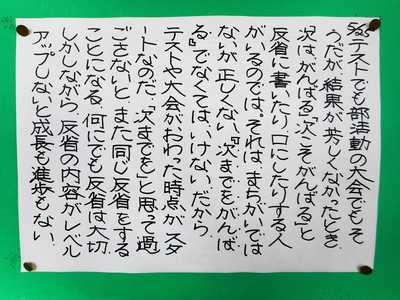 5/25テストでも部活動の大会でもそ
うだが、結果が芳しくなかったとき、
「次は、がんばる」「次こそがんばる」と
反省に書いたり、口にしたりする人
がいるのでは。それは、まちがいでは
ないが正しくない。『次までをがんば
る』でなくては、いけない。だから、
テストや大会がおわった時点が、スタ
ートなのだ。「次までを」と思って過
ごさないと、また同じ反省をする
ことになる。何にでも反省は大切。
しかしながら、反省の内容がレベル
アップしないと成長も進歩もない。